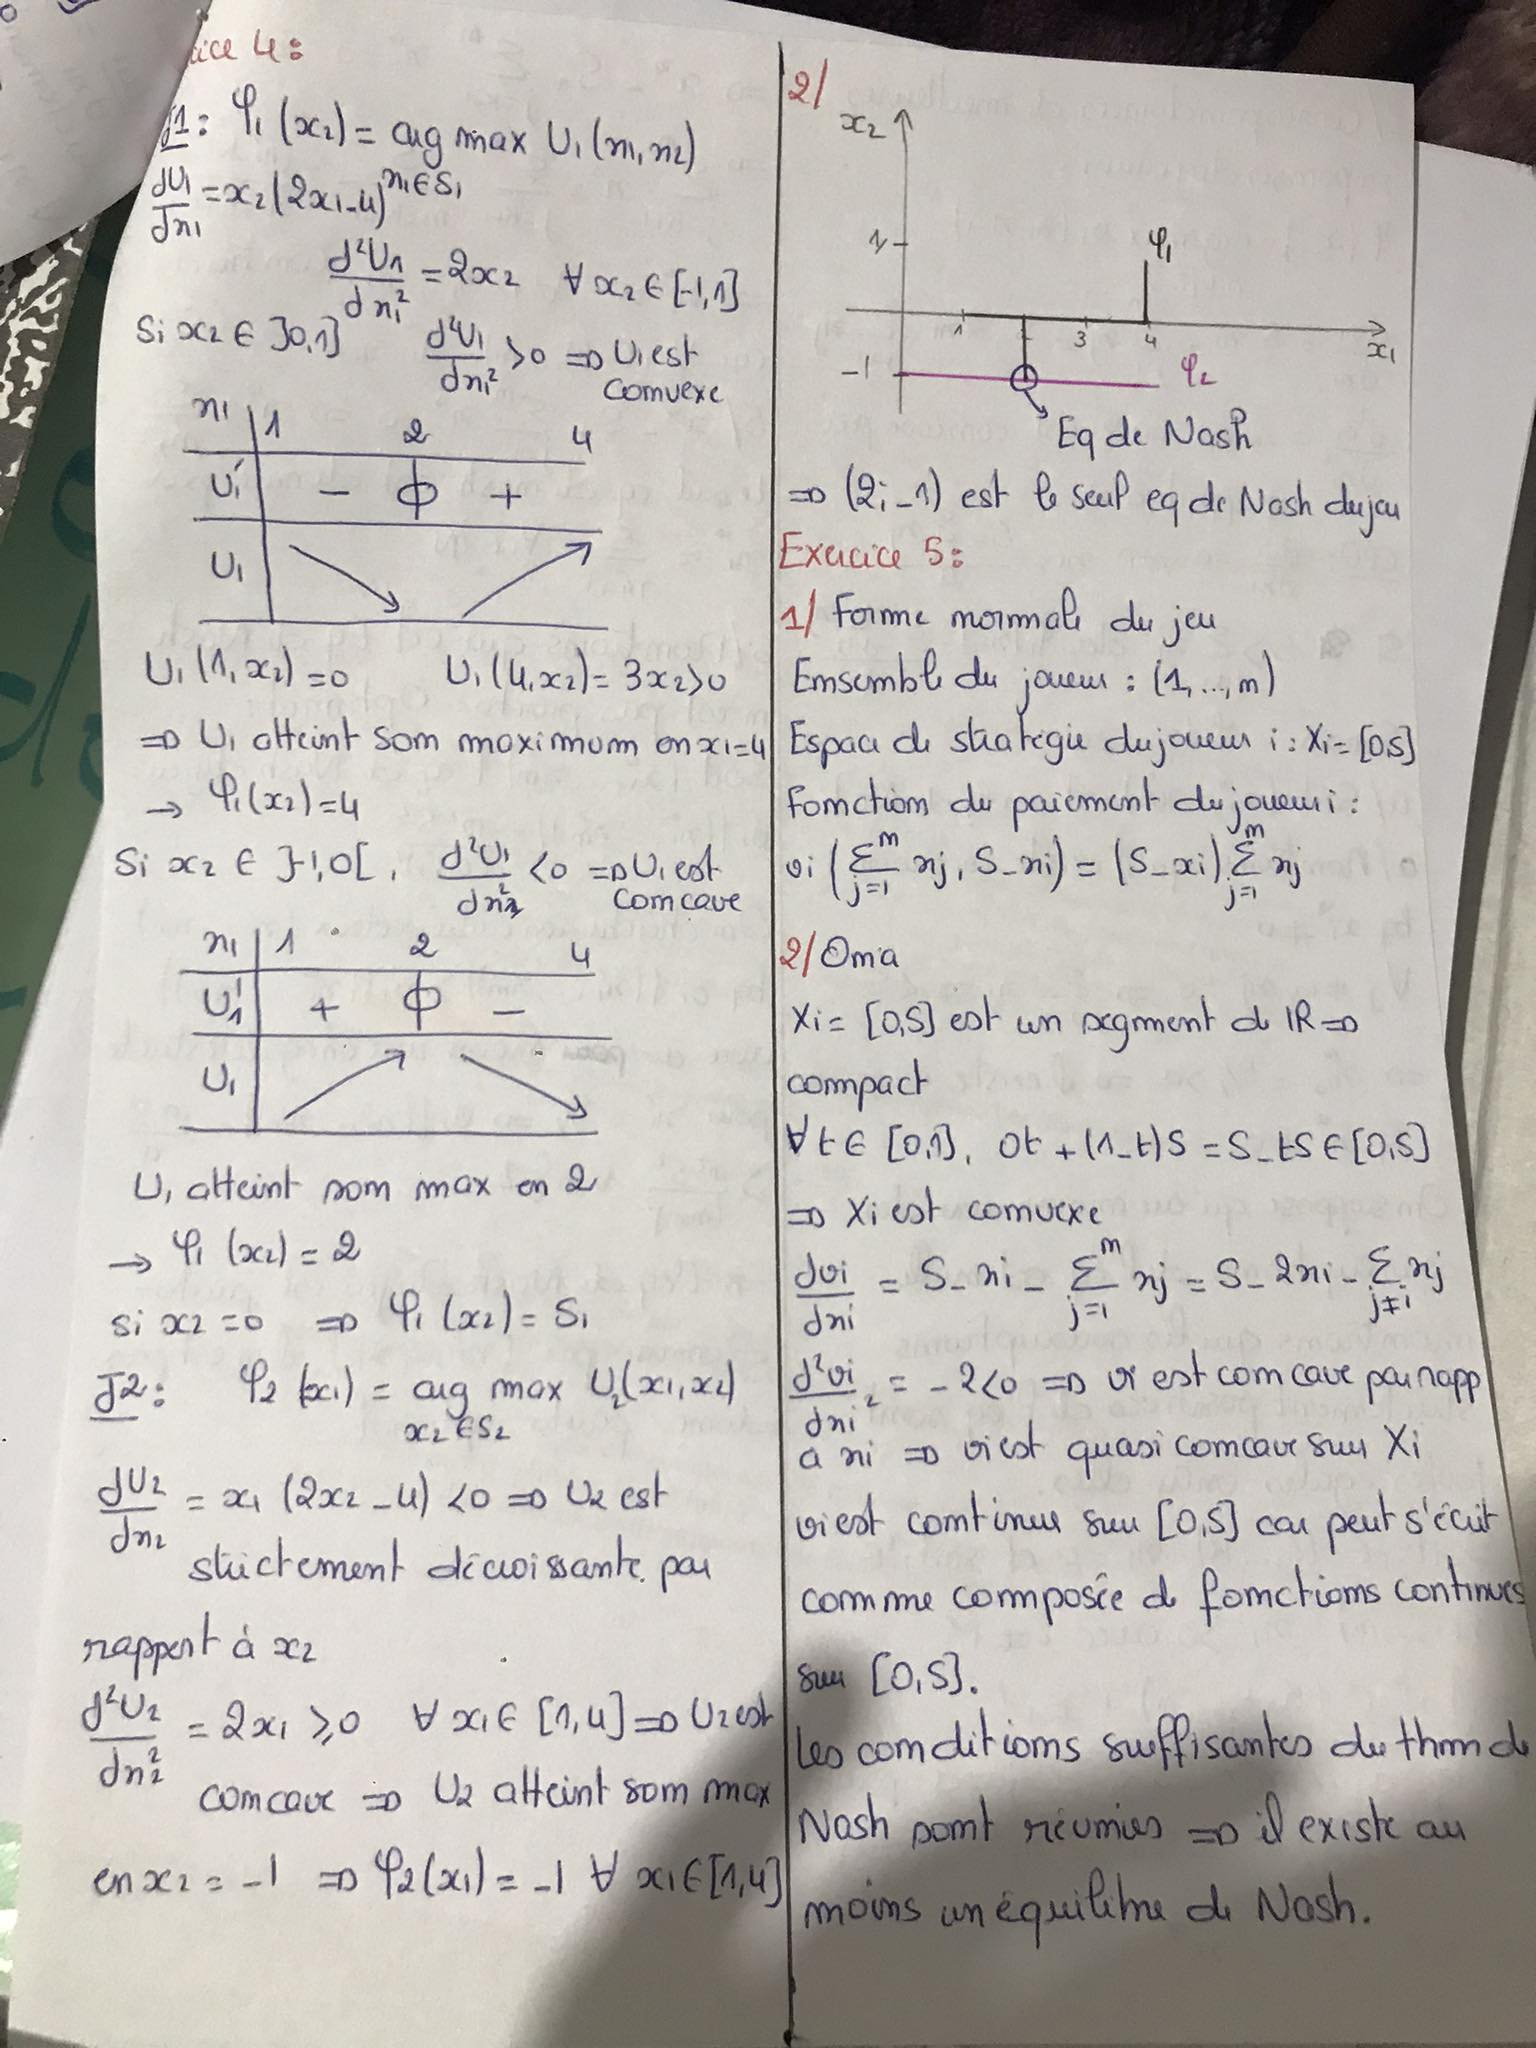 ice 4:
J1: φ₁(x₂) = arg max U₁(x₁,x₂)
x₁∈S₁
dU₁/dx₁ = x₂(2x₁-4)
d²U₁/dx₁² = 2x₂ ∀ x₂ ∈ [-1,1]
Si x₂ ∈ ]0,1] d²U₁/dx₁² >0 => U₁ est
convexe
x₁ 1 2 4
U₁' - 0 +
U₁
U₁(1,x₂)=0 U₁(4,x₂)= 3x₂>0
=> U₁ atteint son maximum en x₁=4
→ φ₁(x₂)=4
Si x₂ ∈ ]-1,0[, d²U₁/dx₁² <0 => U₁ est
concave
x₁ 1 2 4
U₁' + 0 -
U₁
U₁ atteint son max en 2
→ φ₁(x₂) = 2
si x₂ =0 => φ₁(x₂)= S₁
J2: φ₂(x₁) = arg max U₂(x₁,x₂)
x₂∈S₂
dU₂/dx₂ = x₁(2x₂-4) <0 => U₂ est
strictement décroissante par
rapport à x₂
d²U₂/dx₂² = 2x₁ ≥0 ∀ x₁∈ [1,4] => U₂ est
concave => U₂ atteint son max
en x₂ = -1 => φ₂(x₁) = -1 ∀ x₁∈[1,4]
2/
x₂
1
φ₁
1 3 4
x₁
-1
φ₂
Eq de Nash
=> (2;-1) est le seul eq de Nash du jeu
Exercice 5:
1/ Forme normale du jeu
Ensemble du joueur : (1,...,n)
Espace de stratégie du joueur i : Xi= [0,S]
Fonction du paiement du joueur i :
vi (Σⁿⱼ₌₁ xj, S-xi) = (S-xi).Σⁿⱼ₌₁ xj
2/ On a
Xi= [0,S] est un segment de IR =>
compact
∀ t ∈ [0,1], 0t + (1-t)S = S-tS ∈ [0,S]
=> Xi est convexe
dvi/dxi = S-xi - Σⁿⱼ₌₁ xj = S-2xi - Σⱼ≠ᵢ xj
d²vi/dxi² = -2<0 => vi est concave par rapp
a xi => vi est quasi concave sur Xi
vi est continue sur [0,S] car peut s'écrit
comme composée de fonctions continues
sur [0,S].
Les conditions suffisantes du thm de
Nash sont réunies => il existe au
moins un équilibre de Nash.